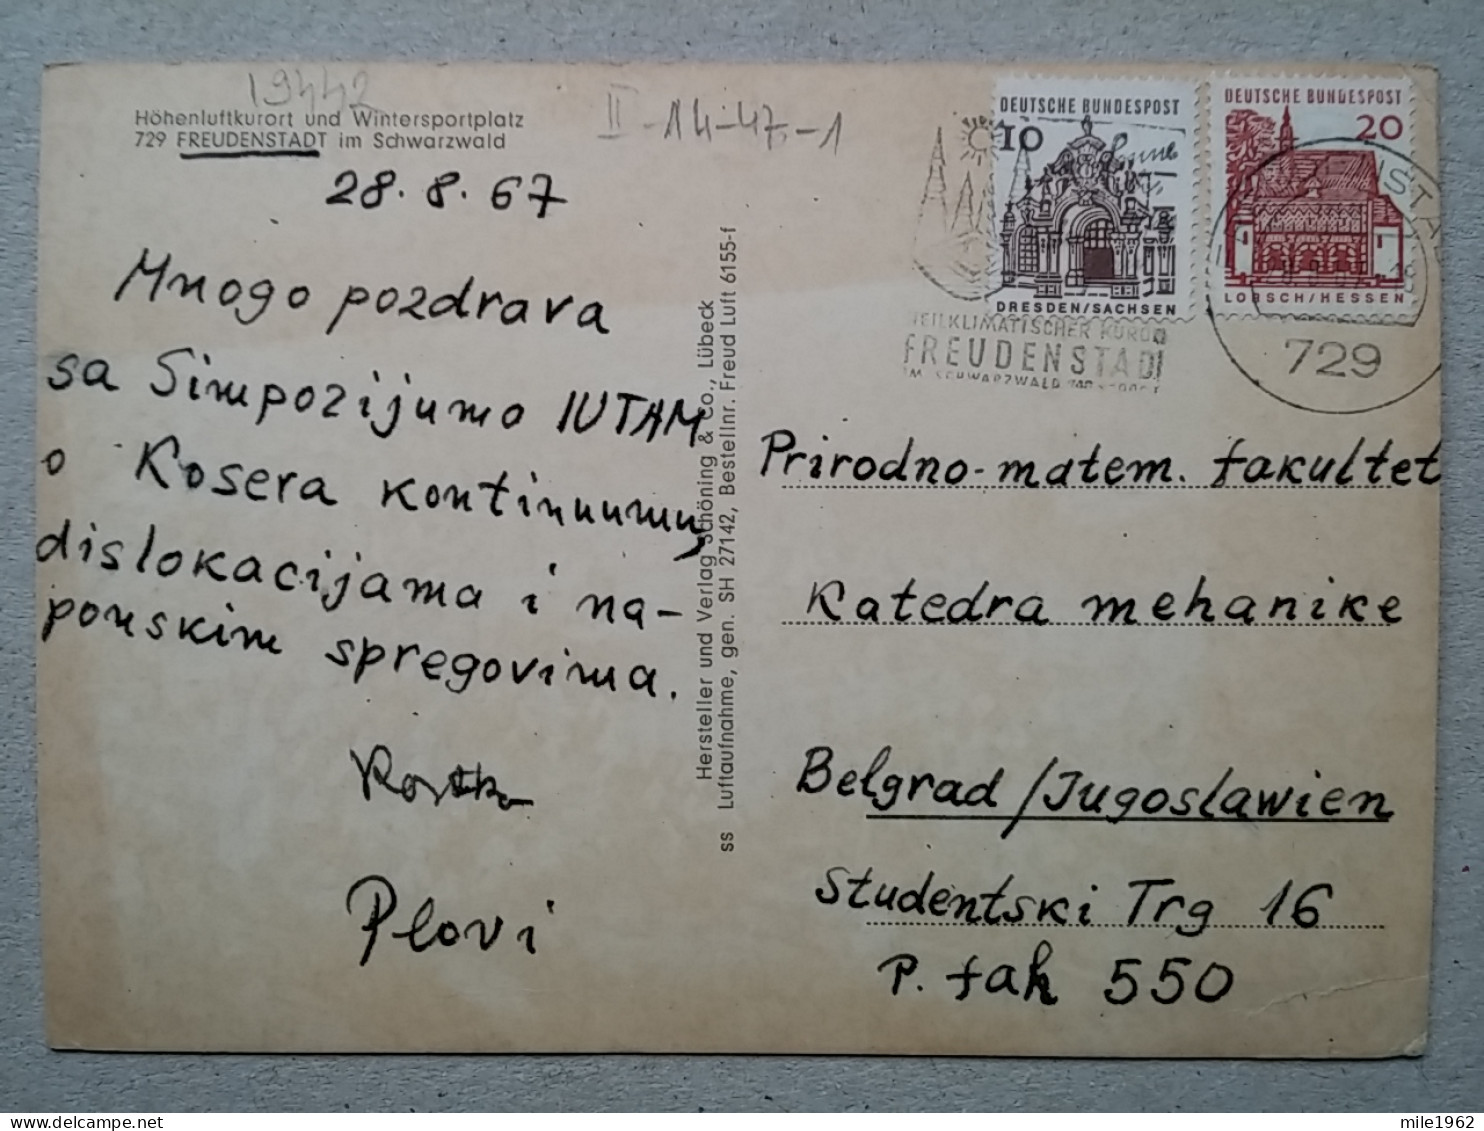 19442
Höhenluftkurort und Wintersportplatz
729 FREUDENSTADT im Schwarzwald
II-14-47.-1
28. 8. 67
Mnogo pozdrava
sa Simpozijumo IUTAM
o Kosera kontinuumu,
dislokacijama i na-
ponskim spregovima.
Rastko
Plovi
Hersteller und Verlag Schöning & Co., Lübeck
ss Luftaufnahme, gen. SH 27142, Bestellnr. Freud Luft 6155-f
DEUTSCHE BUNDESPOST
10
DRESDEN/SACHSEN
DEUTSCHE BUNDESPOST
20
LORSCH/HESSEN
HEILKLIMATISCHER KURORT
FREUDENSTADT
IM SCHWARZWALD
729
Prirodno-matem. fakultet
Katedra mehanike
Belgrad/Jugoslawien
Studentski Trg 16
P. fah 550
mile1962